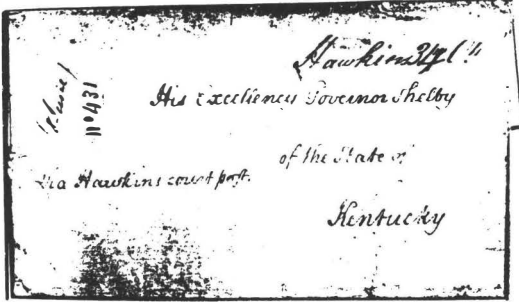 Hawkins
nº 431
His Excellency Governor Shelby
of the State of
via Hawkins court post.
Kentucky